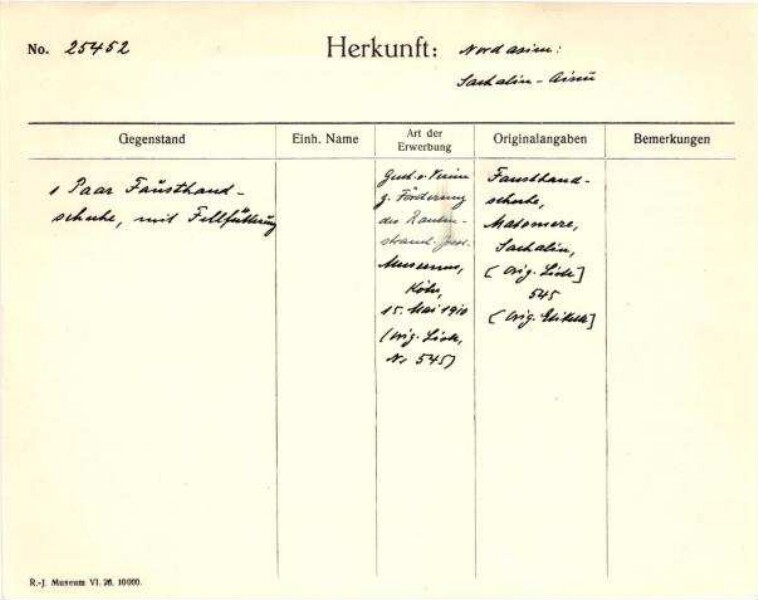 No. 25452
Herkunft: Nordasien:
Sachalin - Ainu
Gegenstand
Einh. Name
Art der
Erwerbung
Originalangaben
Bemerkungen
1 Paar Fausthand-
schuhe, mit Fellfütterung
Gesch. v. Verein
z. Förderung
des Rauten-
strauch-Joest-
Museums,
Köln,
15. Mai 1910
(Orig. Liste,
No 545)
Fausthand-
schuhe,
Sachalin,
[Orig. Liste]
545
[Orig. Etikett]
R.-J. Museum VI. 26. 10000.